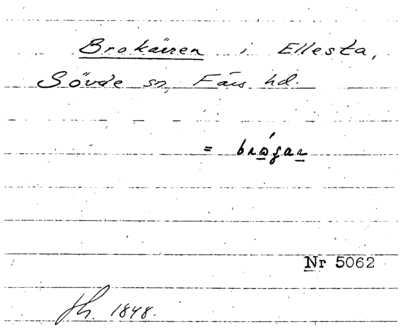 Brokärren i Ellesta,
Sövde sn, Färs hd.
= brǻgar
Nr 5062
1848.